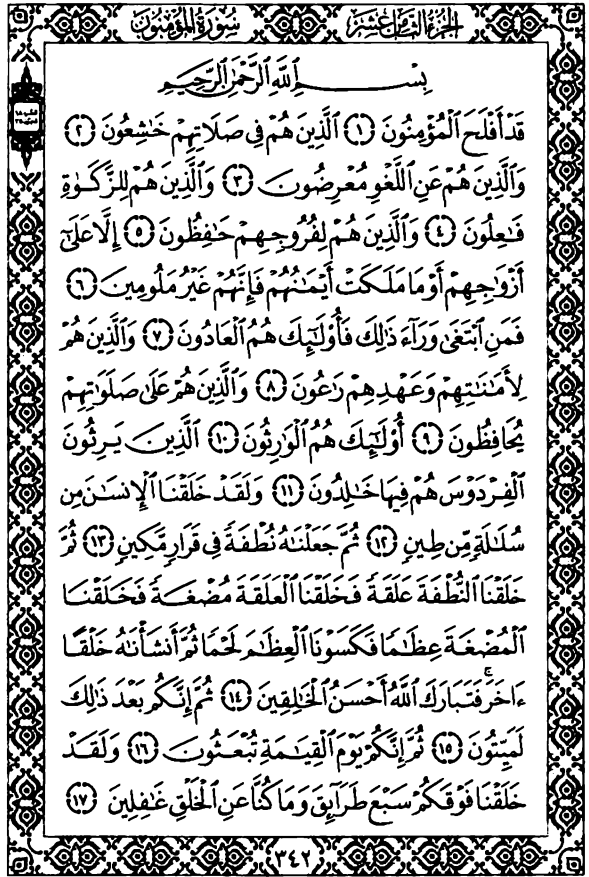 سُورَةُ المُؤْمِنُونَ الجُزْءُ الثَّامِنَ عَشَرَ
بِسْمِ ٱللَّهِ ٱلرَّحْمَٰنِ ٱلرَّحِيمِ
قَدْ أَفْلَحَ ٱلْمُؤْمِنُونَ ١ ٱلَّذِينَ هُمْ فِي صَلَاتِهِمْ خَٰشِعُونَ ٢
وَٱلَّذِينَ هُمْ عَنِ ٱللَّغْوِ مُعْرِضُونَ ٣ وَٱلَّذِينَ هُمْ لِلزَّكَوٰةِ
فَٰعِلُونَ ٤ وَٱلَّذِينَ هُمْ لِفُرُوجِهِمْ حَٰفِظُونَ ٥ إِلَّا عَلَىٰٓ
أَزْوَٰجِهِمْ أَوْ مَا مَلَكَتْ أَيْمَٰنُهُمْ فَإِنَّهُمْ غَيْرُ مَلُومِينَ ٦
فَمَنِ ٱبْتَغَىٰ وَرَآءَ ذَٰلِكَ فَأُو۟لَٰٓئِكَ هُمُ ٱلْعَادُونَ ٧ وَٱلَّذِينَ هُمْ
لِأَمَٰنَٰتِهِمْ وَعَهْدِهِمْ رَٰعُونَ ٨ وَٱلَّذِينَ هُمْ عَلَىٰ صَلَوَٰتِهِمْ
يُحَافِظُونَ ٩ أُو۟لَٰٓئِكَ هُمُ ٱلْوَٰرِثُونَ ١٠ ٱلَّذِينَ يَرِثُونَ
ٱلْفِرْدَوْسَ هُمْ فِيهَا خَٰلِدُونَ ١١ وَلَقَدْ خَلَقْنَا ٱلْإِنسَٰنَ مِن
سُلَٰلَةٍ مِّن طِينٍ ١٢ ثُمَّ جَعَلْنَٰهُ نُطْفَةً فِي قَرَارٍ مَّكِينٍ ١٣ ثُمَّ
خَلَقْنَا ٱلنُّطْفَةَ عَلَقَةً فَخَلَقْنَا ٱلْعَلَقَةَ مُضْغَةً فَخَلَقْنَا
ٱلْمُضْغَةَ عِظَٰمًا فَكَسَوْنَا ٱلْعِظَٰمَ لَحْمًا ثُمَّ أَنشَأْنَٰهُ خَلْقًا
ءَاخَرَ فَتَبَارَكَ ٱللَّهُ أَحْسَنُ ٱلْخَٰلِقِينَ ١٤ ثُمَّ إِنَّكُم بَعْدَ ذَٰلِكَ
لَمَيِّتُونَ ١٥ ثُمَّ إِنَّكُمْ يَوْمَ ٱلْقِيَٰمَةِ تُبْعَثُونَ ١٦ وَلَقَدْ
خَلَقْنَا فَوْقَكُمْ سَبْعَ طَرَآئِقَ وَمَا كُنَّا عَنِ ٱلْخَلْقِ غَٰفِلِينَ ١٧
٣٤٢